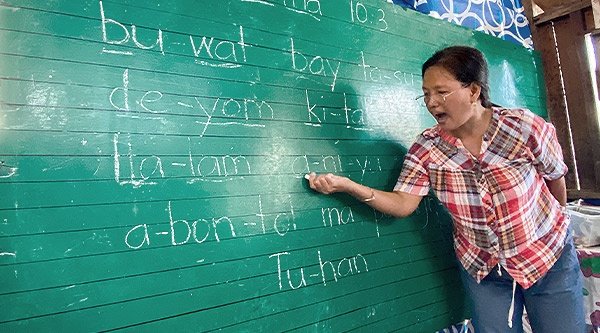 10:3
bu-wat bay ta-su
de-yom ki-ta
La-lam a-ni-yu
a-bon-tol ma
Tu-han